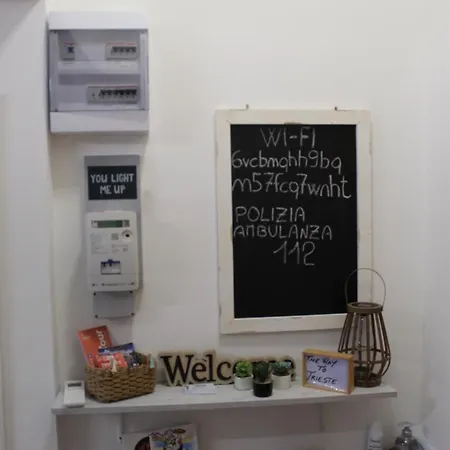 YOU LIGHT
ME UP
WI-FI
6vcbmghh9bq
m57fcq7wnht
POLIZIA
AMBULANZA
112
Welcome
THE WAY
TO
TRIESTE